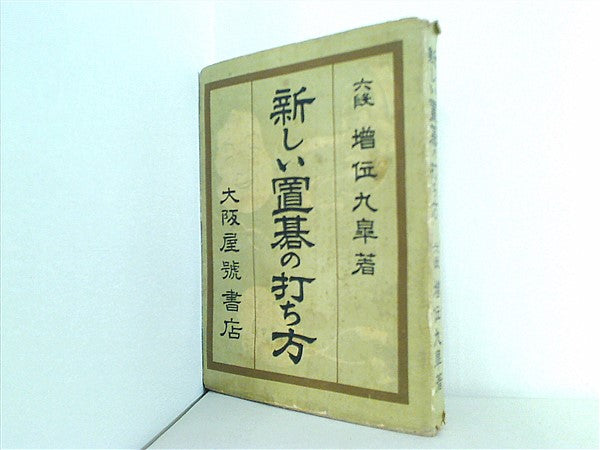 六段 增位九皐著
新しい置碁の打ち方
大阪屋號書店
新しい置碁の打ち方 六段 增位九皐著